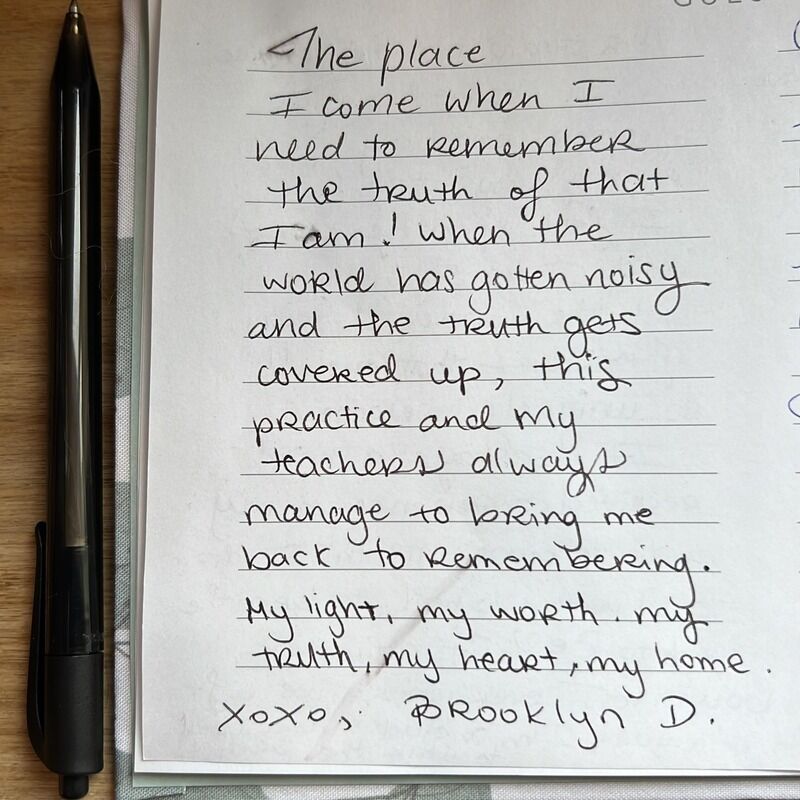 The place
I come when I
need to remember
the truth of that
I am! When the
world has gotten noisy
and the truth gets
covered up, this
practice and my
teachers always
manage to bring me
back to remembering.
My light, my worth. my
truth, my heart, my home.
xoxo, Brooklyn D.